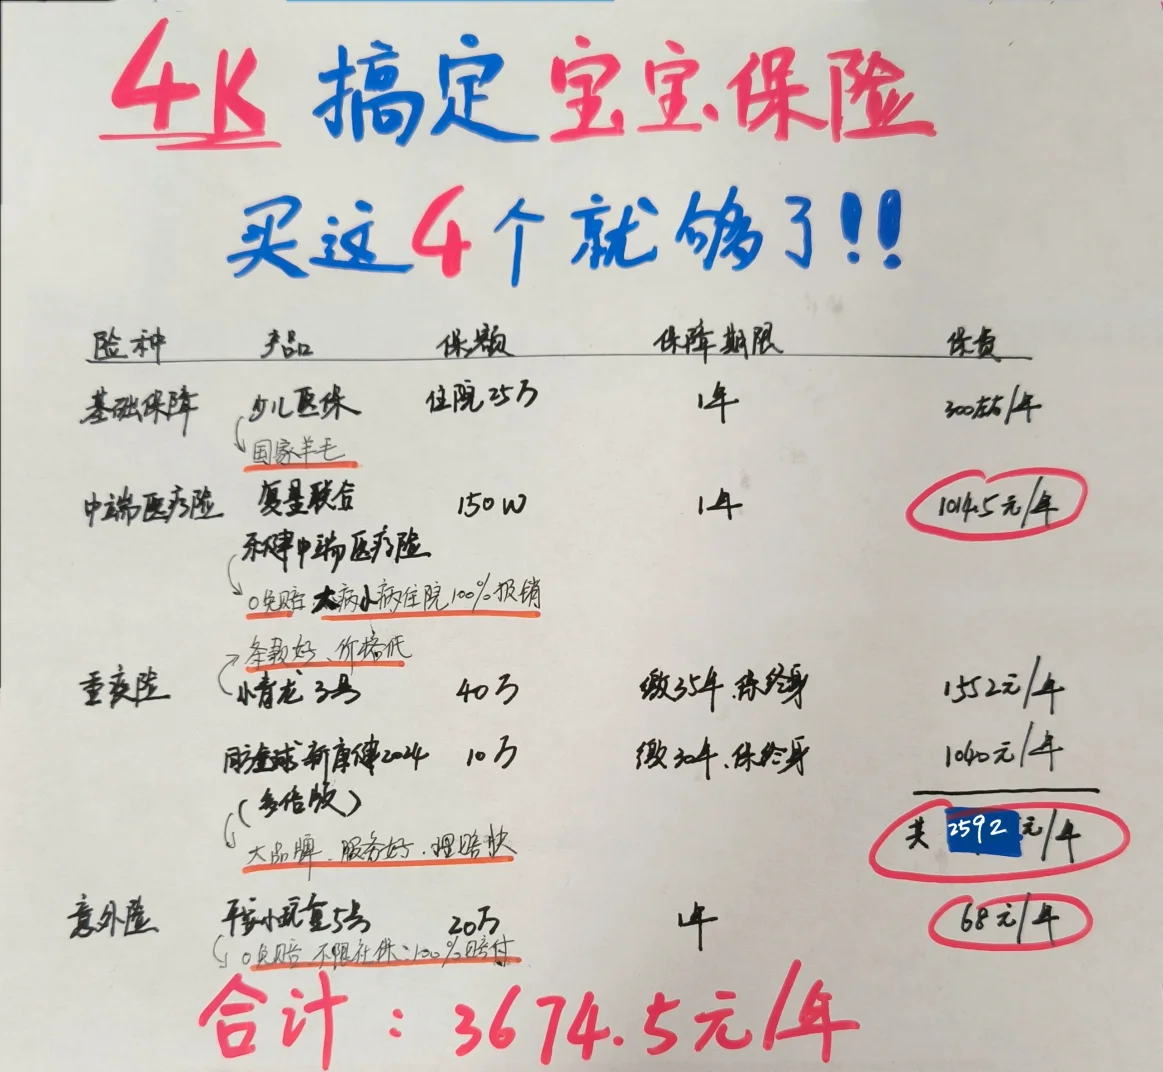 4K 搞定 宝宝保险
买这4个就够了!!
险种 产品 保额 保障期限 保费
基础保障 少儿医保 住院25万 1年 300左右/年
国家羊毛
中端医疗险 复星联合 150W 1年 1014.5元/年
乐健中端医疗险
0免赔 大病小病住院100%报销
条款好、价格低
重疾险 小青龙3号 40万 缴35年、保终身 1552元/年
同方全球新康健2024 10万 缴30年、保终身 1040元/年
(多倍版)
共2592元/年
大品牌、服务好、理赔快
意外险 平安小玩童5号 20万 1年 68元/年
0免赔 不限社保:100%赔付
合计:3674.5元/年